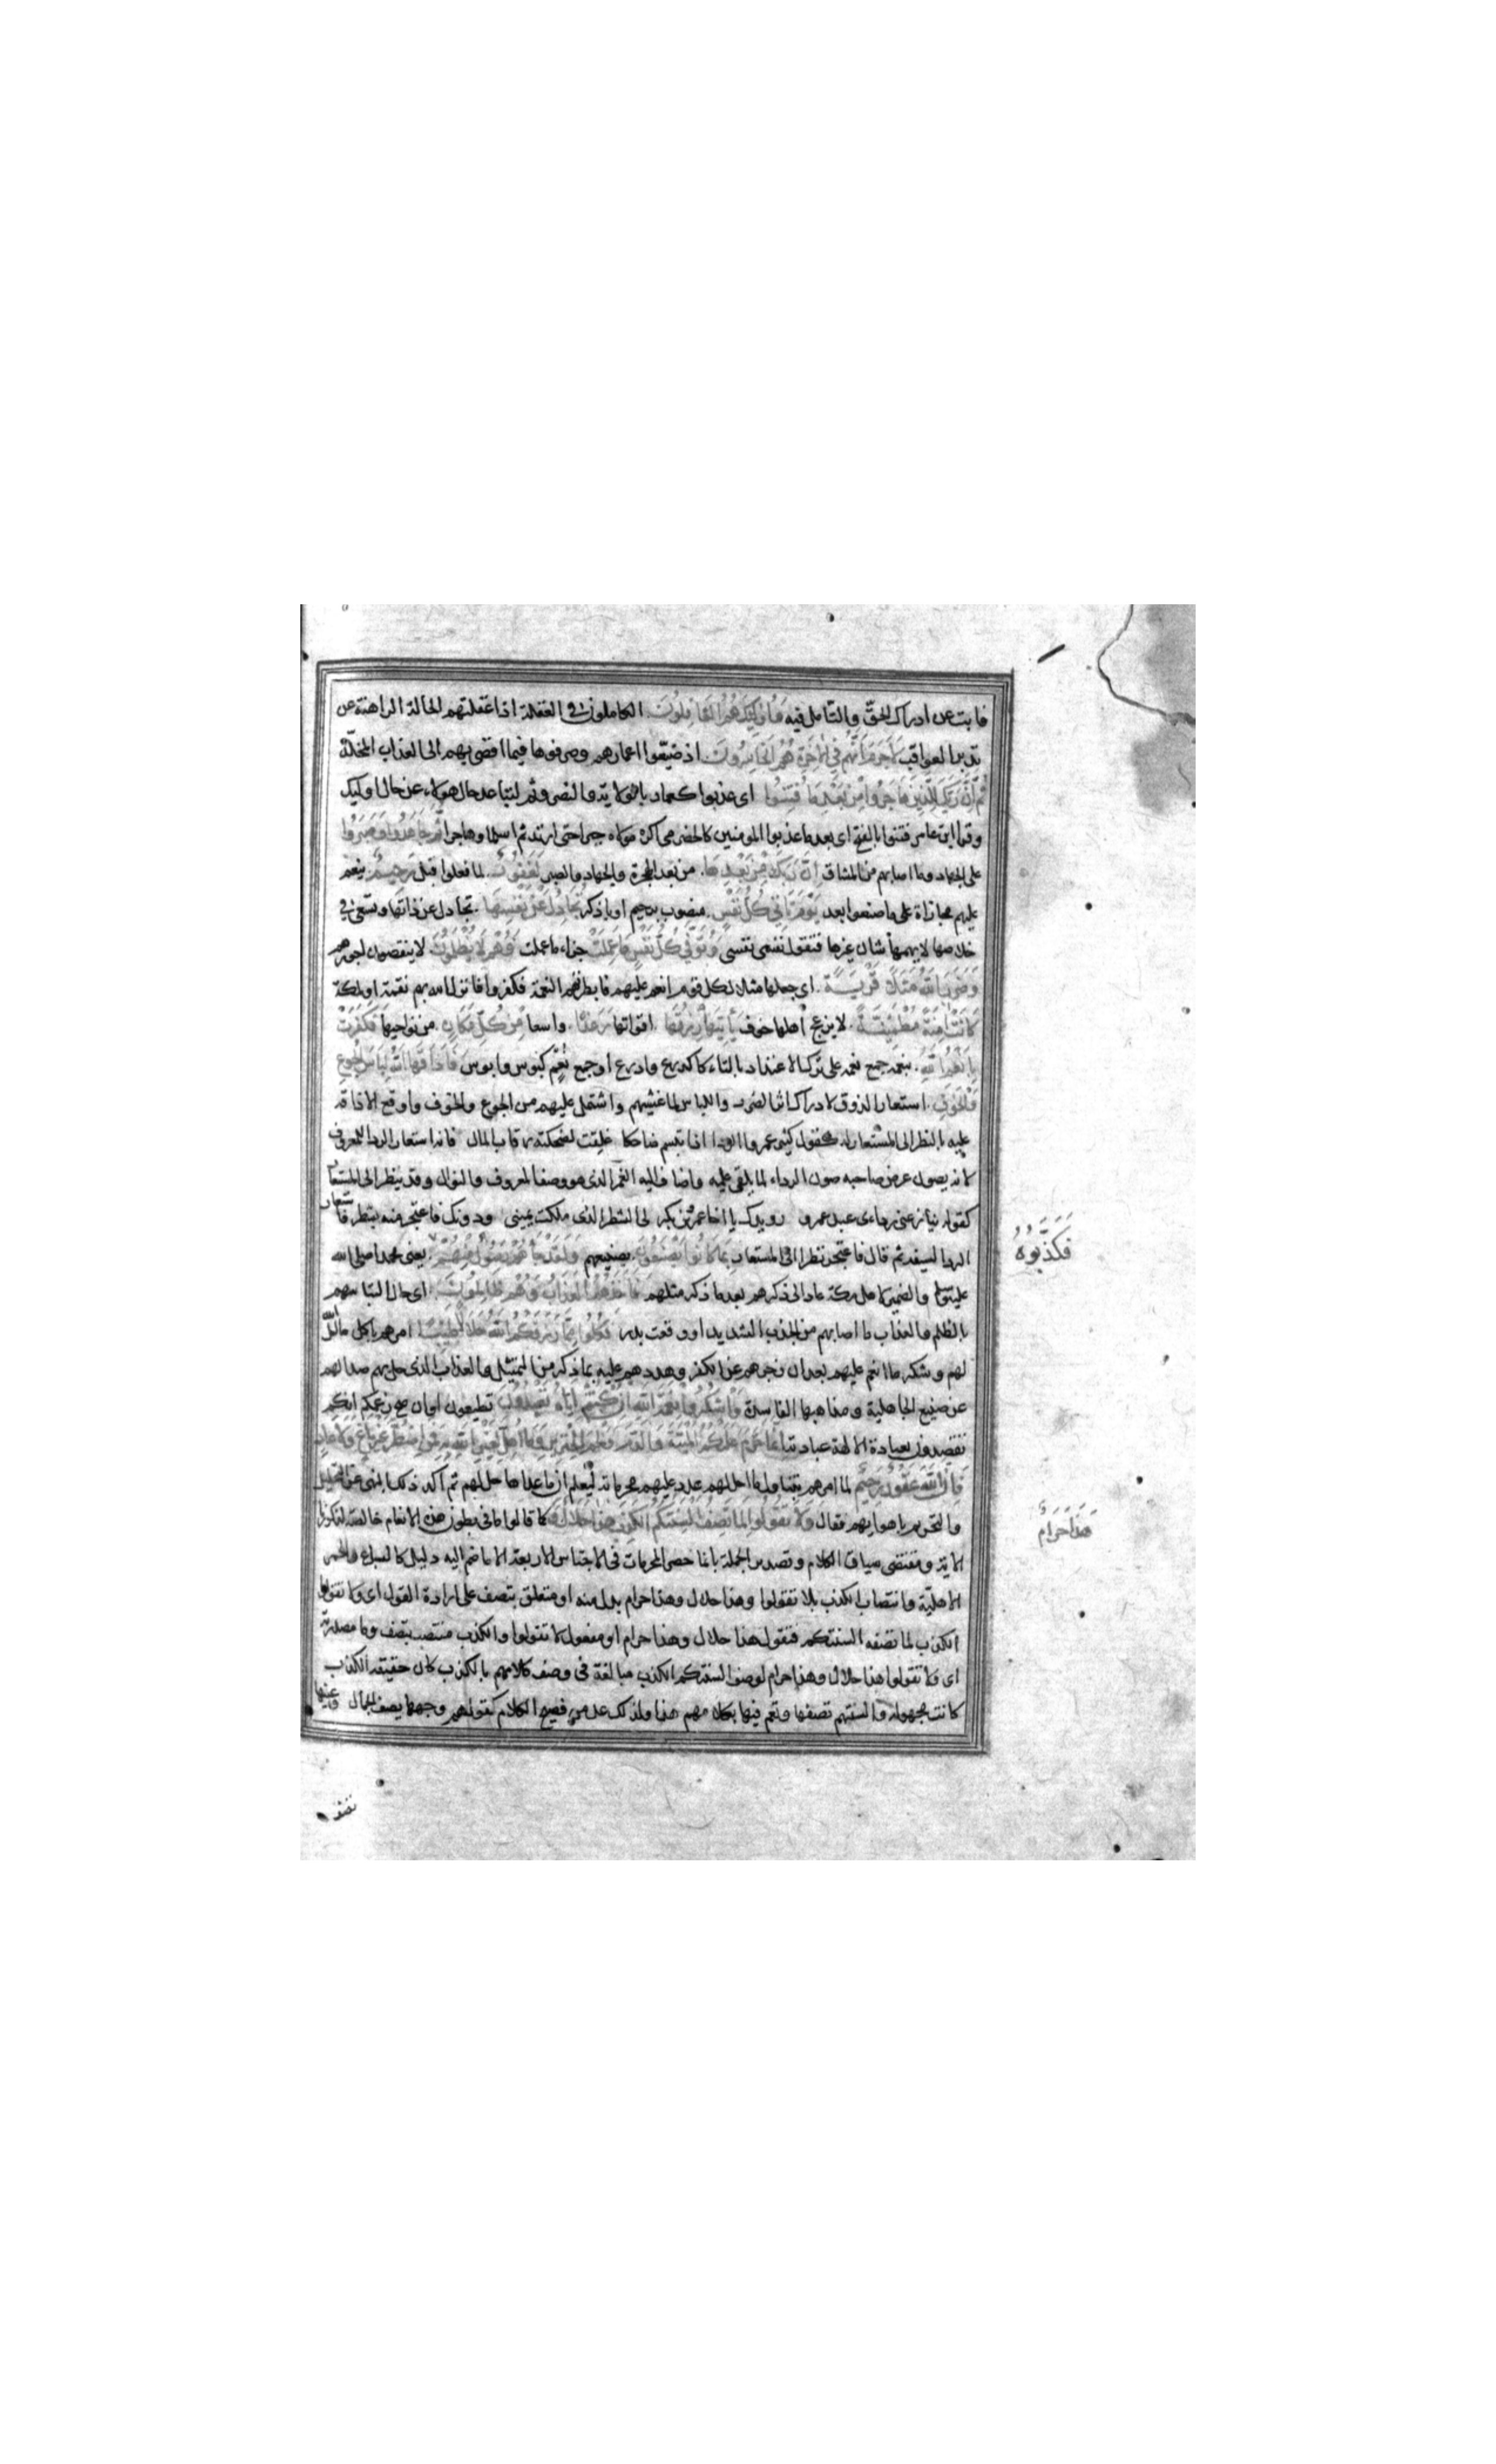 فابت عن ادراك الحق والتامل فيه وَأُولَٰئِكَ هُمُ الْغَافِلُونَ الكاملون في الغفلة اذا غفلتهم الحالة الراهنة عن
تدبر العواقب لَا جَرَمَ أَنَّهُمْ فِي الْآخِرَةِ هُمُ الْخَاسِرُونَ اذ ضيّعوا اعمارهم وصرفوها فيما افضى بهم الى العذاب المخلّد
ثُمَّ إِنَّ رَبَّكَ لِلَّذِينَ هَاجَرُوا مِنْ بَعْدِ مَا فُتِنُوا اى عذبوا كعمار بالولاية والنصر وثم لتباعد حال هؤلاء عن حال اوليك
وقرا ابن عامر فتنوا بالفتح اى بعد ما عذبوا المومنين كالحضرمى اكره مولاه جبرا حتى ارتد ثم اسلما وهاجرا ثُمَّ جَاهَدُوا وَصَبَرُوا
على الجهاد وما اصابهم من المشاق إِنَّ رَبَّكَ مِنْ بَعْدِهَا من بعد الهجرة والجهاد والصبر لَغَفُورٌ لما فعلوا قبل رَحِيمٌ ينعم
عليهم مجازاة على ما صنعوا بعد يَوْمَ تَأْتِي كُلُّ نَفْسٍ منصوب برحيم او باذكر تُجَادِلُ عَنْ نَفْسِهَا تجادل عن ذاتها وتسعى في
خلاصها لا يهمها شان غيرها فتقول نفسى نفسى وَتُوَفَّى كُلُّ نَفْسٍ مَا عَمِلَتْ جزاء ما عملت وَهُمْ لَا يُظْلَمُونَ لا ينقصون اجورهم
وَضَرَبَ اللَّهُ مَثَلًا قَرْيَةً اى جعلها مثلا لكل قوم انعم عليهم فابطرتهم النعمة فكفروا فانزل الله بهم نقمة او لمكة
كَانَتْ آمِنَةً مُطْمَئِنَّةً لا يزعج اهلها خوف يَأْتِيهَا رِزْقُهَا اقواتها رَغَدًا واسعا مِنْ كُلِّ مَكَانٍ من نواحيها فَكَفَرَتْ
بِأَنْعُمِ اللَّهِ بنعمه جمع نعمة على ترك الاعتداد بالتاء كدرع وادرع او جمع نُعم كبوس وابوس فَأَذَاقَهَا اللَّهُ لِبَاسَ الْجُوعِ
وَالْخَوْفِ استعار الذوق لادراك اثر الضرر واللباس لما غشيهم واشتمل عليهم من الجوع والخوف واوقع الاذاقة
عليه بالنظر الى المستعار له كقول كثير غمر الردا اذا تبسم ضاحكا غلقت لضحكته رقاب المال فانه استعار الردا للمعروف
لانه يصون عرض صاحبه صون الرداء لما يلقى عليه واضاف اليه الغمر الذى هو وصف المعروف والنوال وقد ينظر الى المستعار
كقوله ينازعنى ردائى عبد عمرو رويدك يا اخا عمرو بن بكر لى الشطر الذى ملكت يمينى ودونك فاعتجر منه بشطر فاستعار
الردا لسيفه ثم قال فاعتجر نظرا الى المستعار بِمَا كَانُوا يَصْنَعُونَ بصنيعهم وَلَقَدْ جَاءَهُمْ رَسُولٌ مِنْهُمْ يعنى محمدا صلى الله
عليه وسلم والضمير لاهل مكة عاد الى ذكرهم بعد ما ذكر مثلهم فَأَخَذَهُمُ الْعَذَابُ وَهُمْ ظَالِمُونَ اى حال التباسهم
بالظلم والعذاب ما اصابهم من الجدب الشديد او وقعت بدر فَكُلُوا مِمَّا رَزَقَكُمُ اللَّهُ حَلَالًا طَيِّبًا امرهم باكل ما احل الله
لهم وشكر ما انعم عليهم بعد ان زجرهم عن الكفر وهددهم عليه بما ذكر من التمثيل والعذاب الذى حل بهم صدا لهم
عن صنيع الجاهلية ومذاهبها الفاسدة وَاشْكُرُوا نِعْمَةَ اللَّهِ إِنْ كُنْتُمْ إِيَّاهُ تَعْبُدُونَ تطيعون او ان صح زعمكم انكم
تقصدون بعبادة الالهة عبادته إِنَّمَا حَرَّمَ عَلَيْكُمُ الْمَيْتَةَ وَالدَّمَ وَلَحْمَ الْخِنْزِيرِ وَمَا أُهِلَّ لِغَيْرِ اللَّهِ بِهِ فَمَنِ اضْطُرَّ غَيْرَ بَاغٍ وَلَا عَادٍ
فَإِنَّ اللَّهَ غَفُورٌ رَحِيمٌ لما امرهم بتناول ما احل لهم عدد عليهم محرماته ليعلم ان ما عداها حل لهم ثم اكد ذلك بالنهى عن التحليل
والتحريم باهوايهم فقال وَلَا تَقُولُوا لِمَا تَصِفُ أَلْسِنَتُكُمُ الْكَذِبَ هَٰذَا حَلَالٌ كما قالوا ما فى بطون هذه الانعام خالصة لذكورنا
الاية ومقتضى سياق الكلام وتصدير الجملة بانما حصر المحرمات فى الاجناس الاربعة الا ما ضم اليه دليل كالسباع والحمر
الاهلية وانتصاب الكذب بلا تقولوا وهذا حلال وهذا حرام بدل منه او متعلق بتصف على ارادة القول اى ولا تقولوا
الكذب لما تصفه السنتكم فتقول هذا حلال وهذا حرام او مفعول لا تقولوا والكذب منتصب بتصف وما مصدرية
اى ولا تقولوا هذا حلال وهذا حرام لوصف السنتكم الكذب مبالغة فى وصف كلامهم بالكذب كان حقيقة الكذب
كانت مجهولة والسنتهم تصفها وتعرفها بكلامهم هذا ولذلك عد من فصيح الكلام كقولهم وجهها يصف الجمال وعينها
فَكَذَّبُوهُ
هَذَا حَرَامٌ
تصف